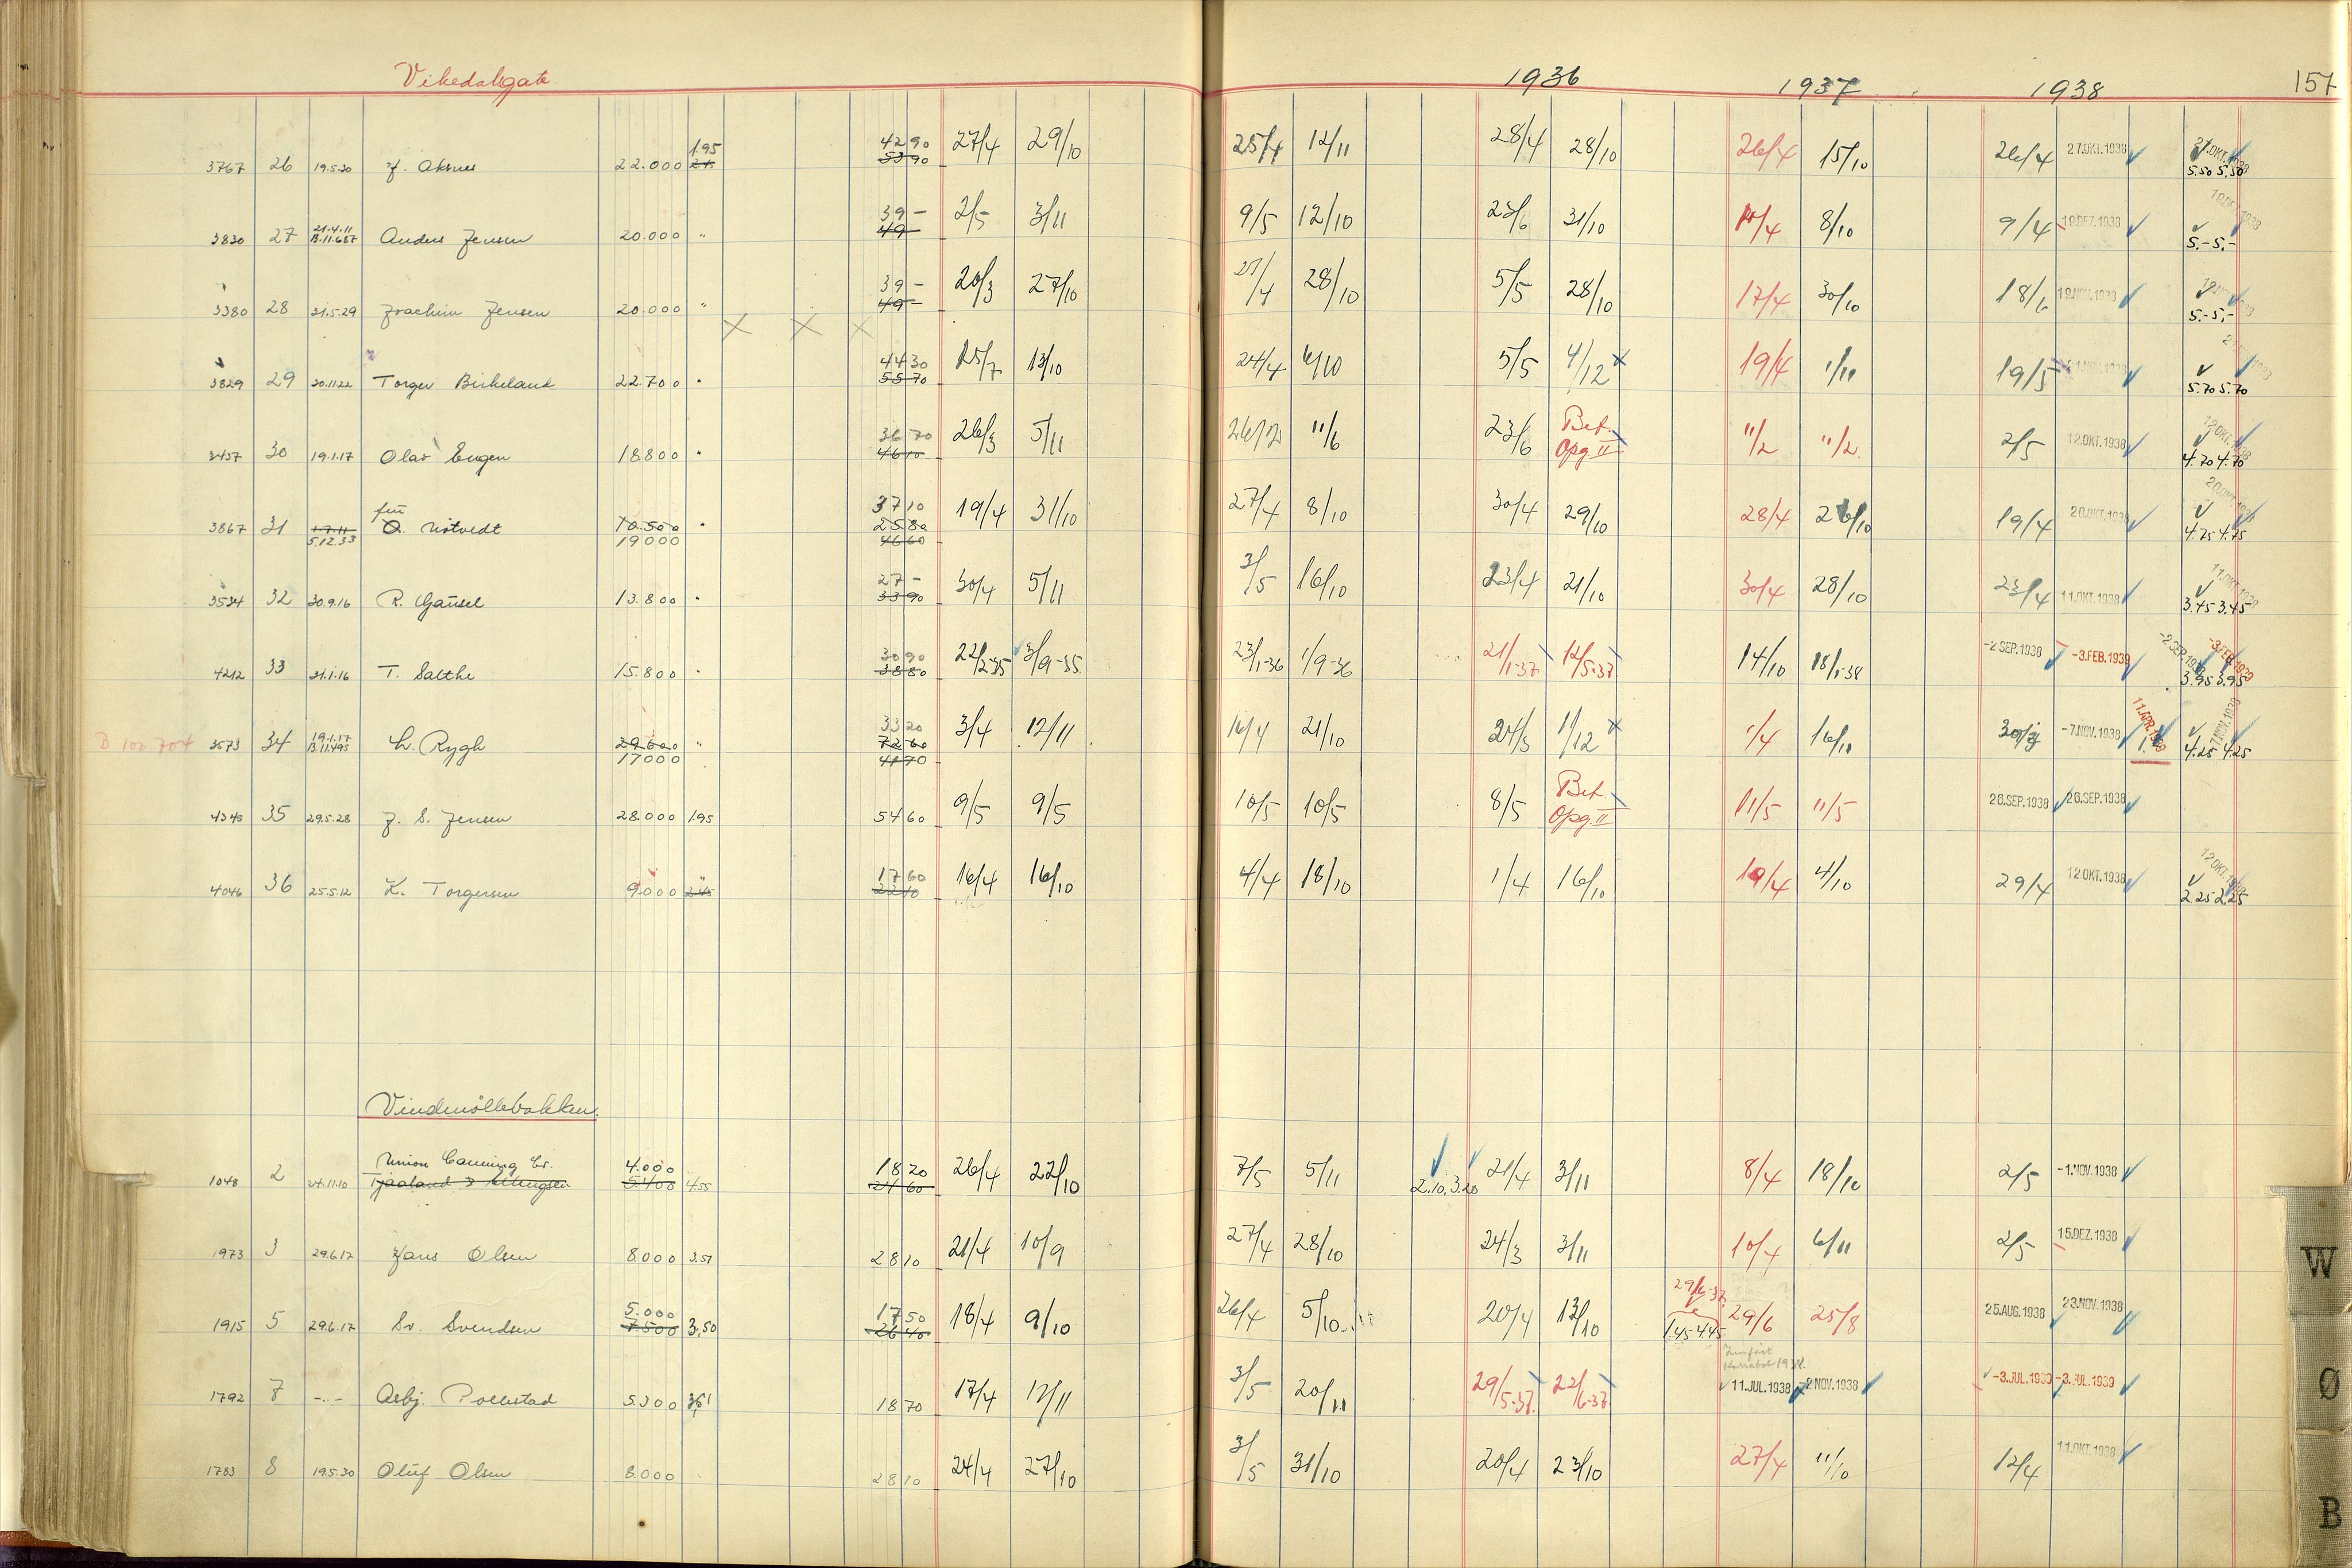 Vikedalsgate. 1936 1937 1938 157
1.95 42 90
3767 26 19.5.30 J. Aksnes 22.000 2.45 53 90 27/4 29/10 25/4 12/11 28/4 28/10 26/4 15/10 26/4 27.OKT.1938 27.OKT.1938
5.50 5.50
21.4.11 39 -
3830 27 B.11.687 Anders Jensen 20.000 " 49 - 2/5 3/11 9/5 12/10 23/6 31/10 10/4 8/10 9/4 19.DEZ.1938 19.DEZ.1938
5.- 5.-
39 -
3380 28 31.5.29 Joachim Jensen 20.000 " 49 - 20/3 27/10 27/4 28/10 5/5 28/10 17/4 30/10 18/6 19.NOV.1938
5.- 5.-
44 30
3829 29 30.11.22 Torger Birkeland 22.700 " 55 70 25/7 13/10 24/4 6/10 5/5 4/12 x 19/4 1/11 19/5
5.70 5.70
36 70 Bet.
3457 30 19.1.17 Olav Eugen 18.800 " 46 10 26/3 5/11 11/6 23/6 Opg. II 11/2 11/2. 2/5 12.OKT.1938 12.OKT.1938
4.70 4.70
37 10
3867 31 17.11 O. Nötvedt 10.500 " 25 80 19/4 31/10 27/4 8/10 30/4 29/10 28/4 26/10 19/4 20.OKT.1938 20.OKT.1938
5.12.33 19000 46 60 4.75 4.75
27 -
3534 32 30.9.16 R. Gausel 13.800 " 33 90 30/4 5/11 3/5 16/10 23/4 21/10 30/4 28/10 23/4 11.OKT.1938 11.OKT.1938
3.45 3.45
30 90
4212 33 31.1.16 T. Salthe 15.800 " 38 80 22/2-35 3/9-35 23/1-36 1/9-36 21/1-37 12/5-37 14/10 18/1-38 -2.SEP.1938 -3.FEB.1939 -2.SEP.1938 -3.FEB.1939
3.95 3.95
19.1.17 33 20
B 100 704 3573 34 B.11.495 L. Rygh 29600 " 72 60 3/4 12/11 16/4 21/10 24/3 1/12 x 1/4 16/11 30/3 -7.NOV.1938 11.APR.1939 -7.NOV.1938
17000 41 70 1. 4.25 4.25
Bet.
4345 35 29.5.28 J. S. Jensen 28.000 1.95 54 60 9/5 9/5 10/5 10/5 8/5 Opg. II 11/5 11/5 26.SEP.1938 26.SEP.1938
17 60
4046 36 25.5.12 K. Torgersen 9.000 2.45 22 10 16/4 16/10 4/4 18/10 1/4 16/10 19/4 4/10 29/4 12.OKT.1938 12.OKT.1938
2.25 2.25
Vindmöllebakken.
Union Canning Co. 4.000 18 20
1048 2 24.11.10 Tjaaland & 5.400 4.55 24 60 26/4 22/10 7/5 5/11 2.10. 3.20 21/4 3/11 8/4 18/10 2/5 -1.NOV.1938
1973 3 29.6.17 Hans Olsen 8.000 3.51 28 10 21/4 10/9 27/4 28/10 24/3 3/11 10/4 6/11 2/5 15.DEZ.1938
5.000 17 50 29/6-37.
1915 5 29.6.17 Sv. Svendsen 7.500 3.50 26 40 18/4 9/10 26/4 5/10 20/4 13/10 1.45 4.45 29/6 25/8 25.AUG.1938 23.NOV.1938
1792 7 -.- Asbj. Pollestad 5.300 3.51 18 70 17/4 12/11 3/5 20/11 29/5-37. 22/6-37. 11.JUL.1938 -2.NOV.1938 -3.JUL.1939 -3.JUL.1939
1783 8 19.5.30 Oluf Olsen 8.000 28 10 24/4 27/10 3/5 31/10 20/4 23/10 27/4 11/10 12/4 11.OKT.1938
W
Ø
B